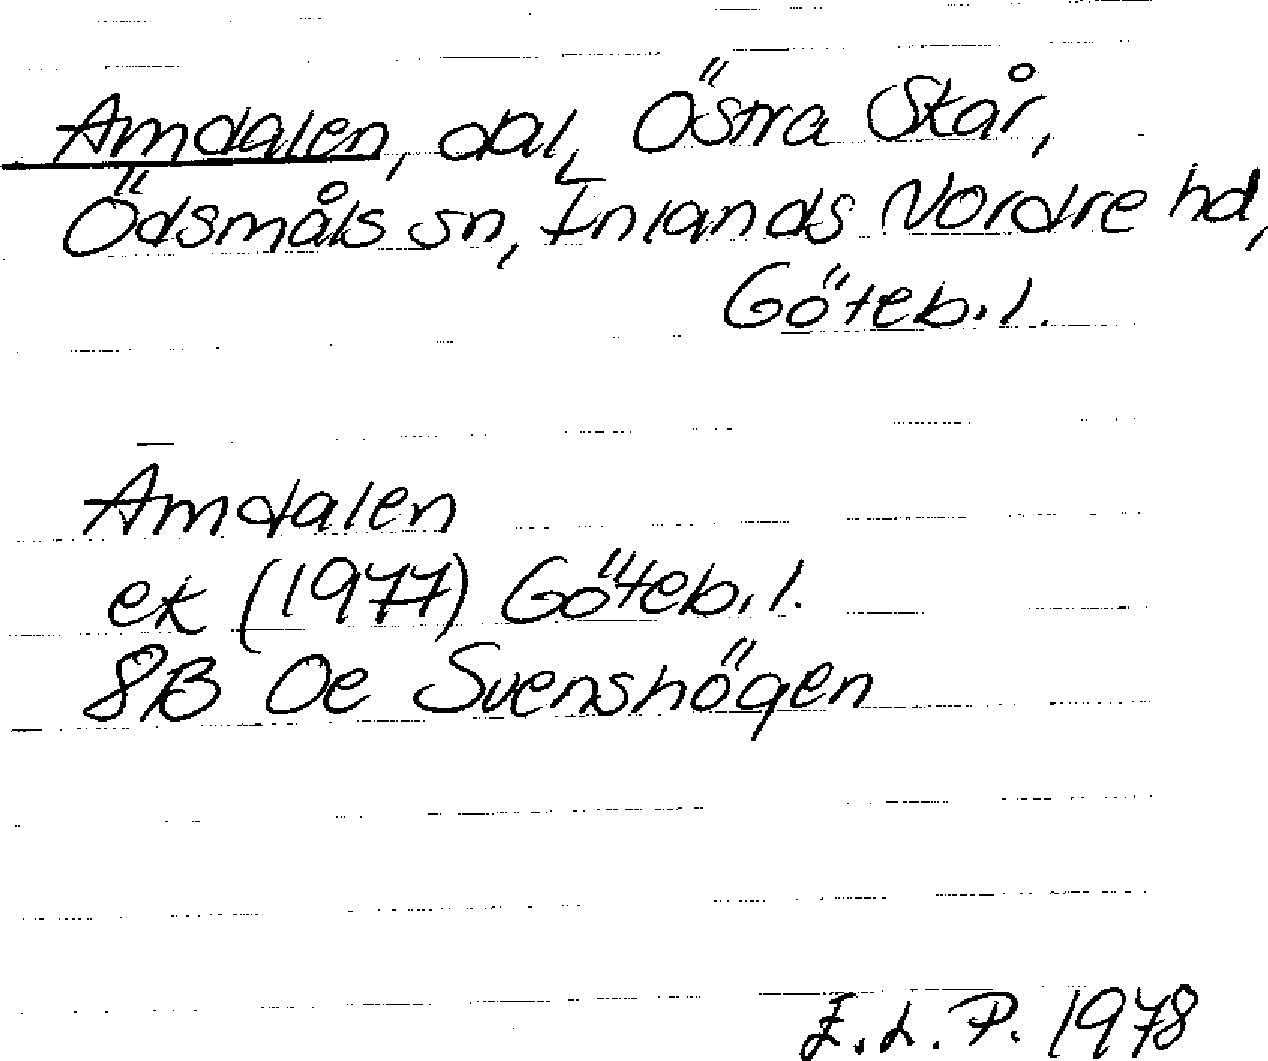 Amdalen, dal, Östra Skår,
Ödsmåls sn, Inlands Nordre hd,
Göteb.l.
Amdalen
ek (1977) Göteb.l.
8B 0e Svenshögen
E.L.P. 1978